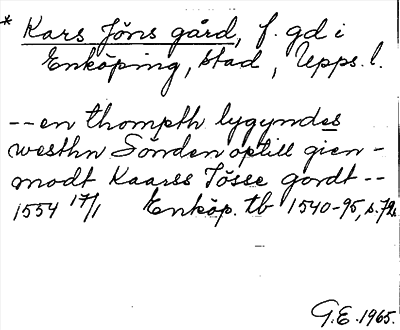 * Kars Jöns gård, f. gd i
Enköping, stad, Upps. l.
--en thompth lygyndes
westhn Sönden optill gien-
modt Kaarss Jösse gordt --
1554 17/1 Enköp. tb 1540-95, s. 72.
G.E. 1965.